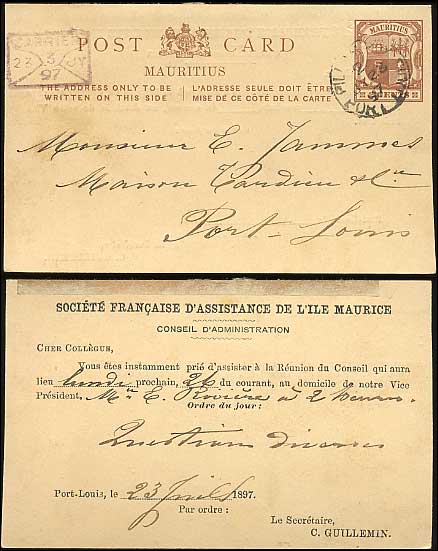 CARRIER
23 JY
97
POST CARD
MAURITIUS
THE ADDRESS ONLY TO BE WRITTEN ON THIS SIDE
L'ADRESSE SEULE DOIT ÊTRE MISE DE CE CÔTÉ DE LA CARTE
MAURITIUS
CENTS
PORT
Monsieur E. Jammes
Maison Tardieu & Cie
Port-Louis
SOCIÉTÉ FRANÇAISE D'ASSISTANCE DE L'ILE MAURICE
CONSEIL D'ADMINISTRATION
CHER COLLÈGUE,
Vous êtes instamment prié d'assister à la Réunion du Conseil qui aura
lieu lundi prochain, 26 du courant, au domicile de notre Vice
Président, Mr E. Rivière à 2 heures.
Ordre du jour :
Questions diverses
Port-Louis, le 23 Juil 1897.
Par ordre :
Le Secrétaire,
C. GUILLEMIN.